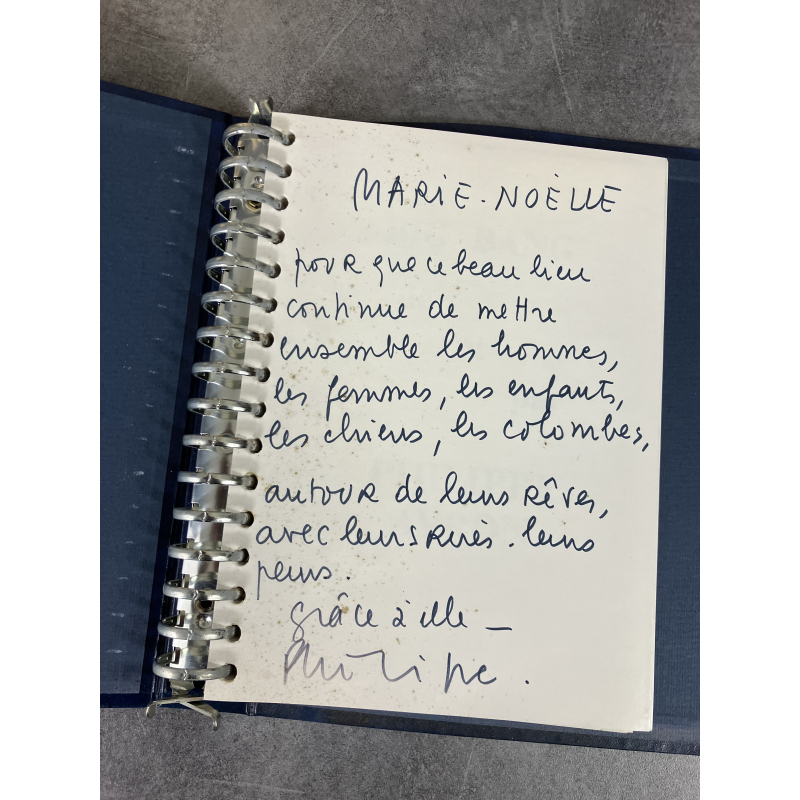 MARIE-NOËLLE
pour que ce beau lieu
continue de mettre
ensemble les hommes,
les femmes, les enfants,
les chiens, les colombes,
autour de leurs rêves,
avec leurs . leurs
peurs.
grâce à elle —
Philippe.